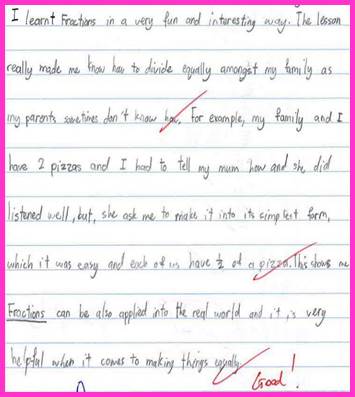 I learnt Fractions in a very fun and interesting way. The lesson
really made me know how to divide equally amongst my family as
my parents sometimes don't know how. For example, my family and I
have 2 pizzas and I had to tell my mum how and she did
listened well, but, she ask me to make it into its simplest form,
which it was easy and each of us have ½ of a pizza. This shows me
Fractions can be also applied into the real world and it is very
helpful when it comes to making things equally.
Good!